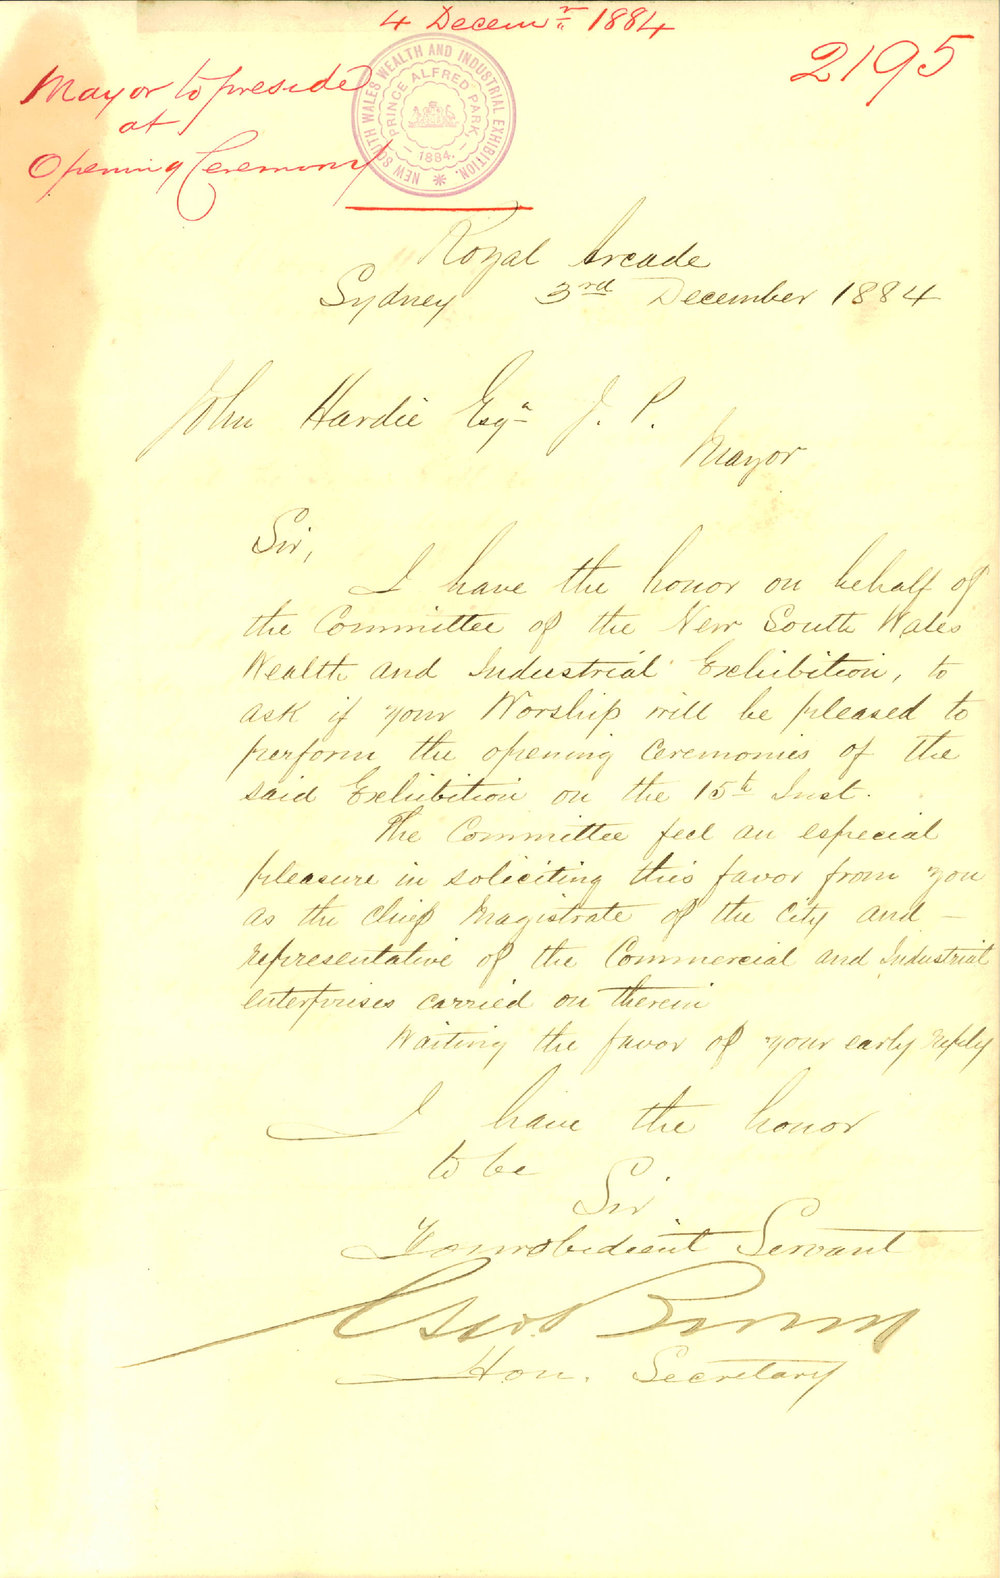 4 Decemr 1884
2195
Mayor to preside
at
Opening Ceremony
NEW SOUTH WALES WEALTH AND INDUSTRIAL EXHIBITION.
PRINCE ALFRED PARK,
1884.
Royal Arcade
Sydney 3rd December 1884
John Hardie Esqr J. P.
Mayor
Sir,
I have the honor on behalf of
the Committee of the New South Wales
Wealth and Industrial Exhibition, to
ask if your Worship will be pleased to
perform the opening ceremonies of the
said Exhibition on the 15th Inst.
The Committee feel an especial
pleasure in soliciting this favor from you
as the chief Magistrate of the City and –
representative of the Commercial and Industrial
enterprises carried on therein
Waiting the favor of your early reply
I have the honor
to be
Sir
Your obedient Servant
Hon. Secretary